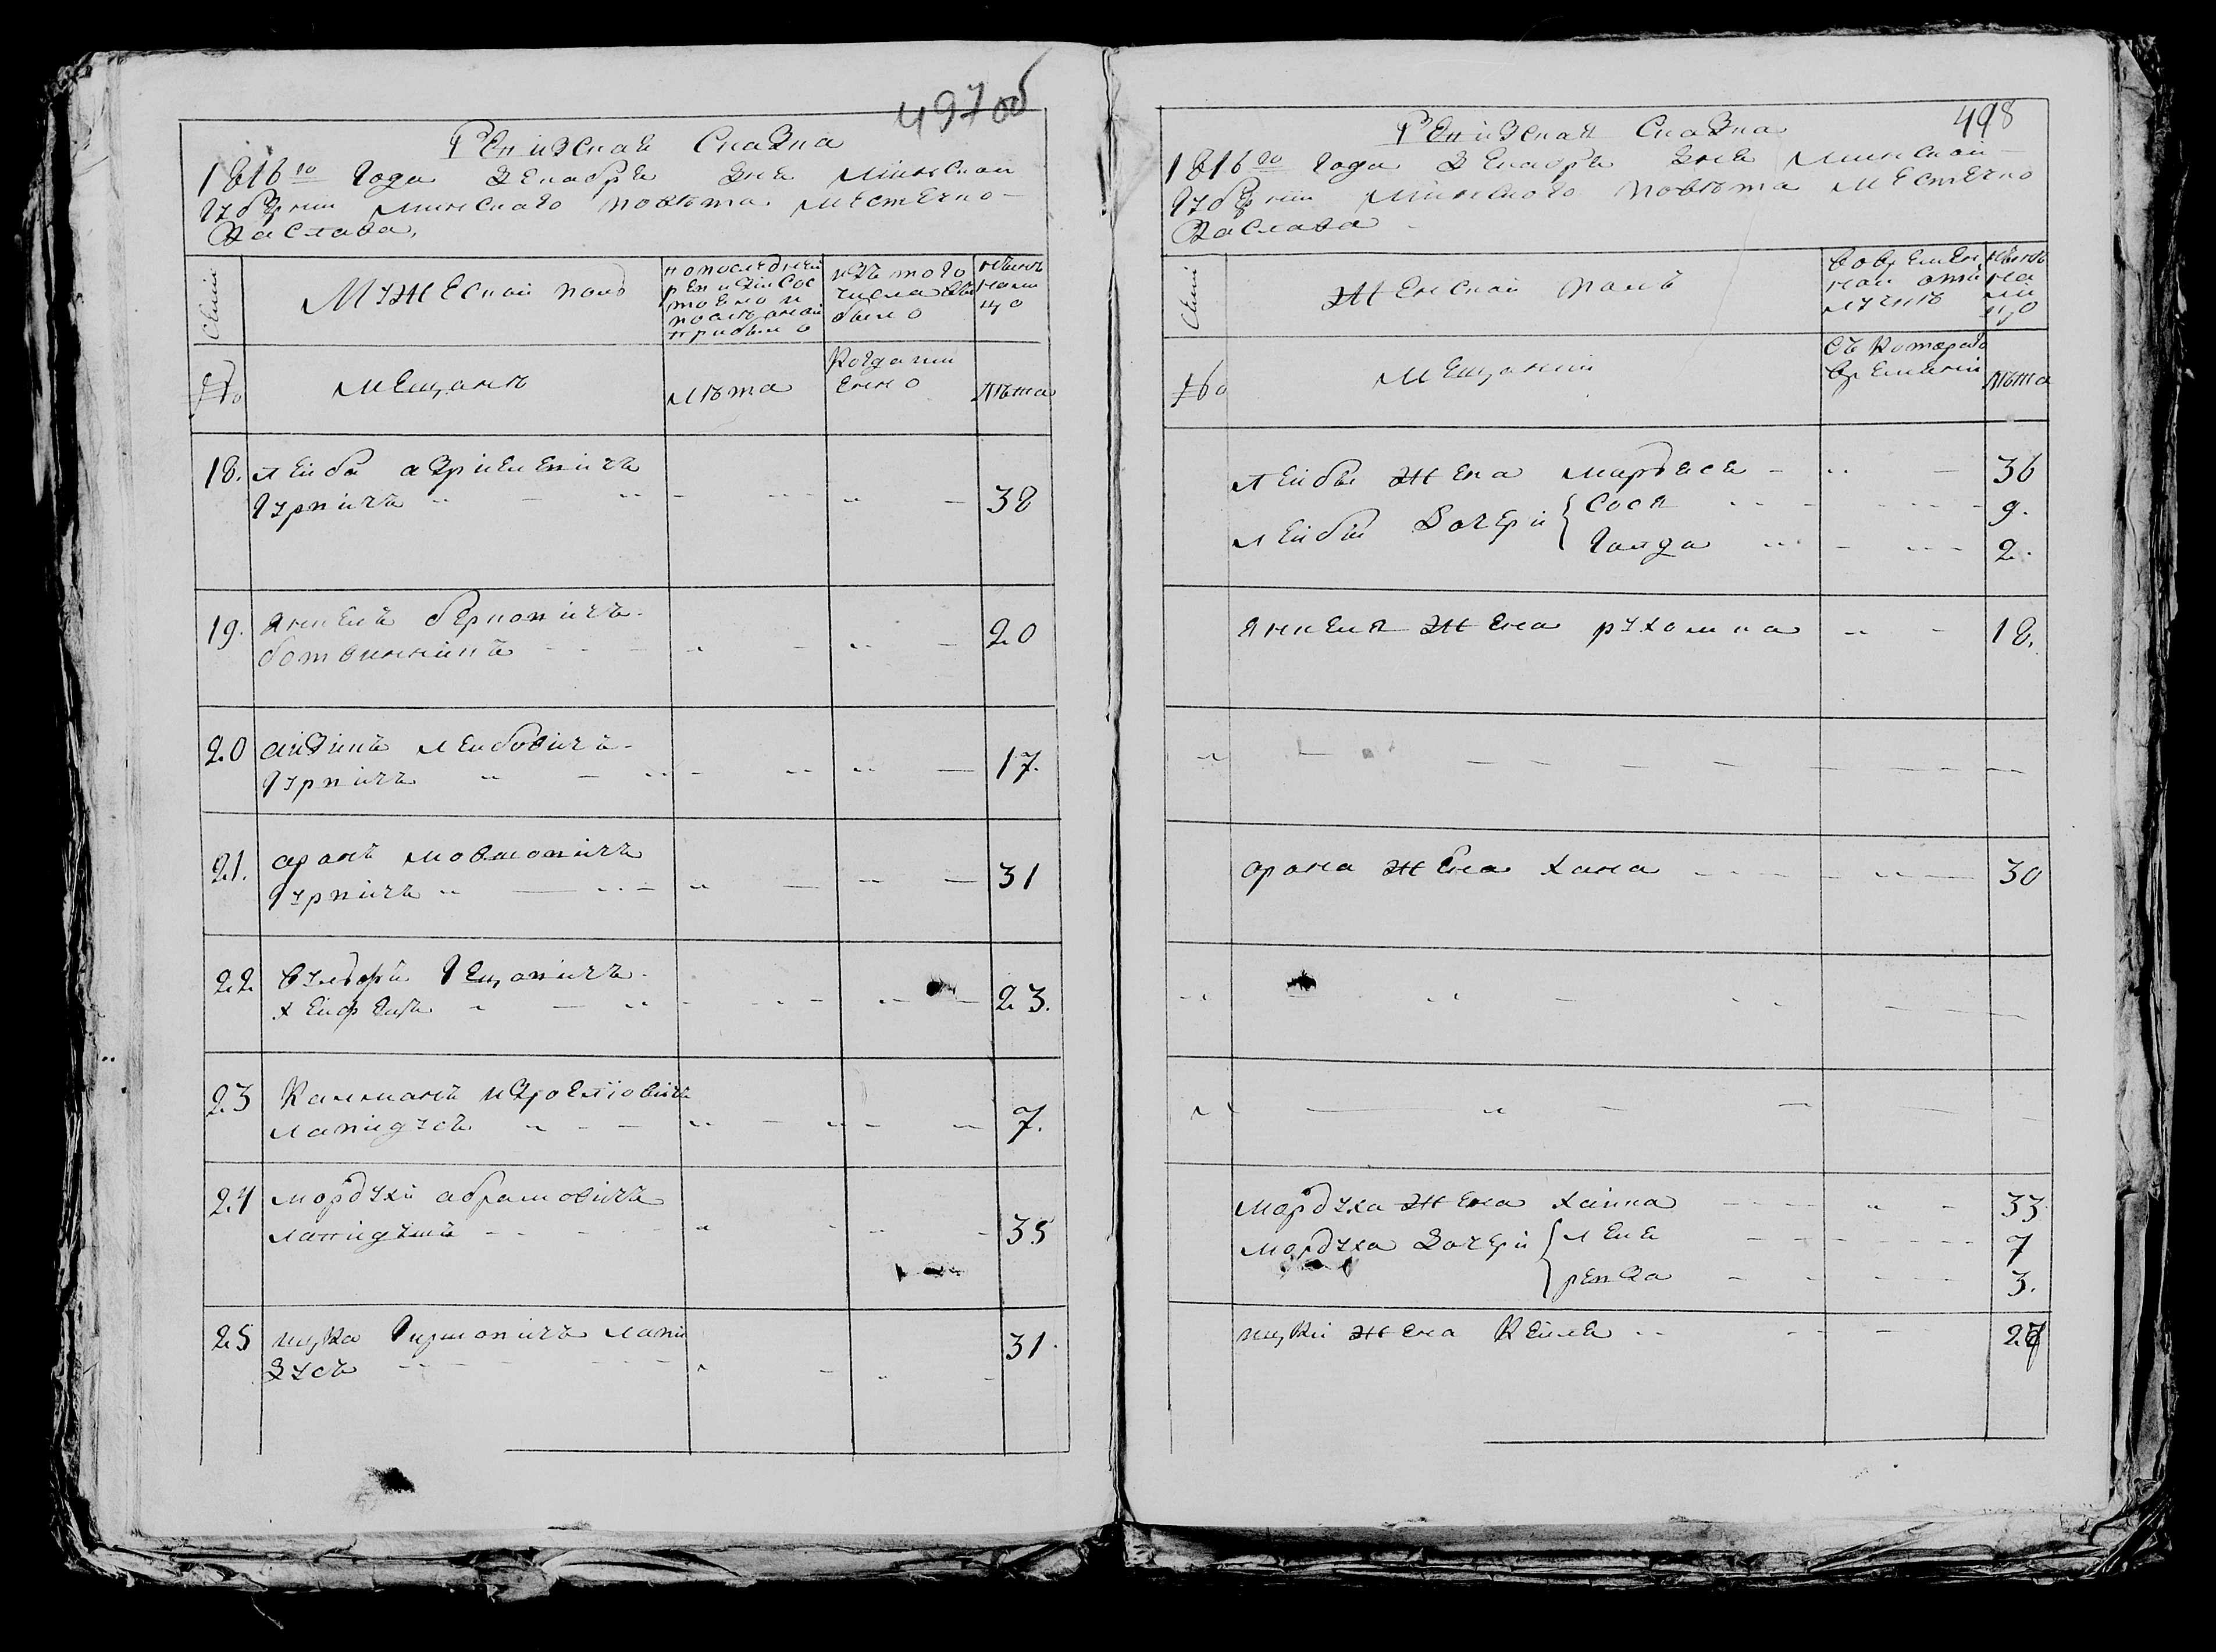 497об
Ревизская Сказка
1816го года Декабря дня Минской
губернии Минскаго повѣта местечко
Заслава,
Семьи
Мужеской полъ
по последней ревизіи состояло и после оной прибыло
изъ того числа выбыло
нынѣ налицо
№
мещанѣ
лѣта
Когда именно
лѣта
18. лейба
гурвичъ 38
19. янкель берковичъ
20
20 айзикъ лейбовичъ
гурвичъ 17.
21. аронъ мовшовичъ
гурвичъ 31
22
хейфецъ 23.
23 Калманъ израелїовичъ
лапидусъ 7.
24 мордухъ абрамовичъ
лапидусъ 35
25 ицка гиршовичъ лапи
дусъ 31
498
Ревизская Сказка
1816го года Декабря дня Минской
губернии Минскаго повѣта местечко
Заслава
Семьи
Женской полъ
во временной отлучкѣ
нынѣ налицо
№
мещанки
Съ котораго времени
лѣта
лейбы жена 36
лейбы дочери { Сося 9.
голда 2.
янкеля жена рухомка 18.
арона жена хана 30
мордуха жена хаика 33
мордуха дочери { лея 7
ревза 3.
ицки жена Кейля